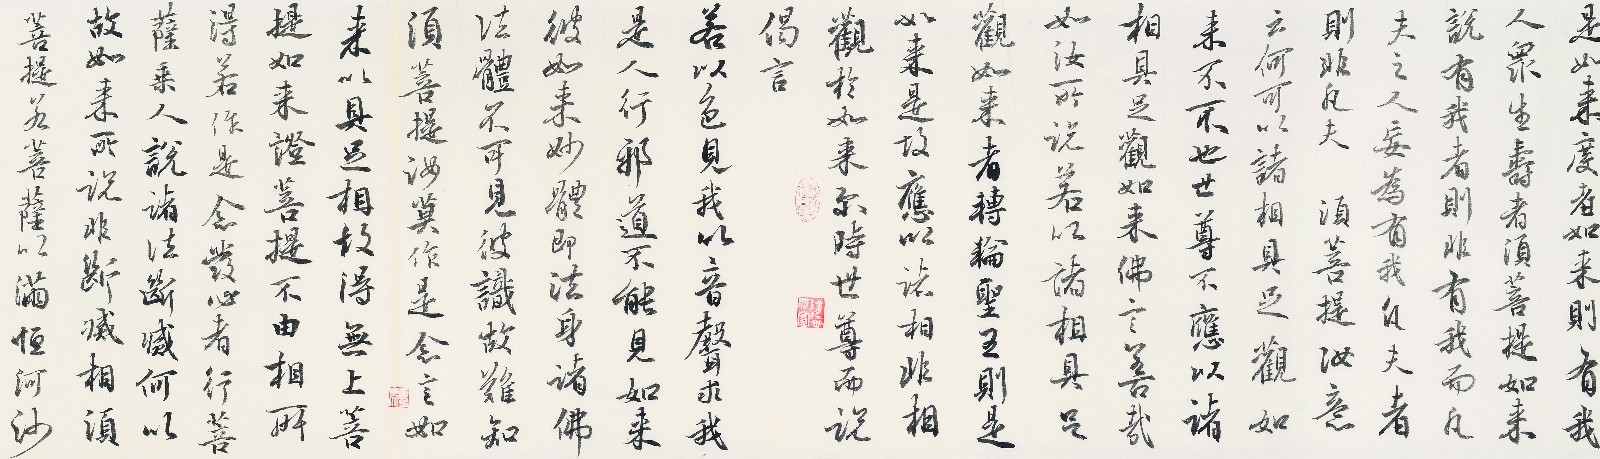 是如来度者如来則有我
人衆生壽者須菩提如来
說有我者則非有我而凡
夫之人妄為有我凡夫者
則非凡夫 須菩提汝意
云何可以諸相具足觀如
来不不也世尊不應以諸
相具足觀如来佛言善哉
如汝所說若以諸相具足
觀如来者轉輪聖王則是
如来是故應以諸相非相
觀於如来尔時世尊而說
偈言
若以色見我以音聲求我
是人行邪道不能見如来
彼如来妙體即法身諸佛
法體不可見彼識故難知
須菩提汝莫作是念言如
来以具足相故得無上菩
提如来證菩提不由相所
得若作是念發心者行菩
薩乘人說諸法斷滅何以
故如来所說非斷滅相須
菩提若菩薩以滿恒河沙